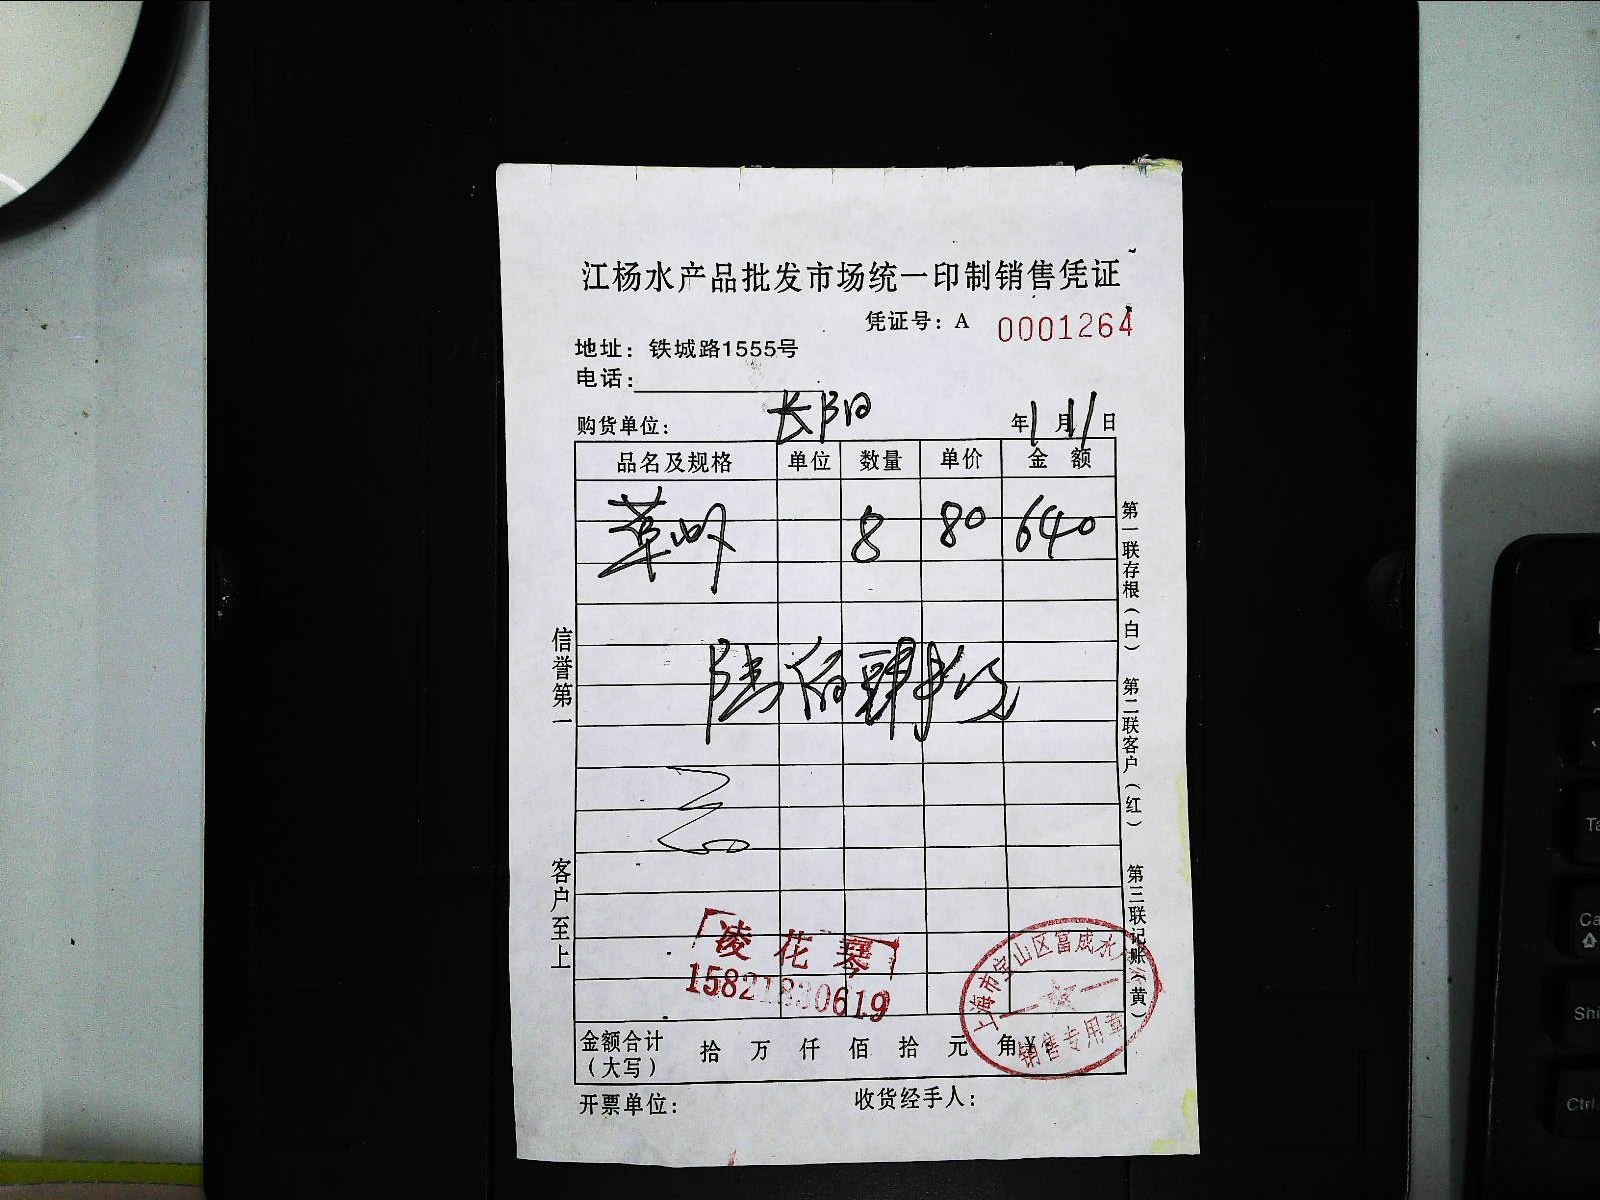 江杨水产品批发市场统一印制销售凭证
凭证号：A 0001264
地址：铁城路1555号
电话：
购货单位： 长阳 年1月11日
品名及规格 单位 数量 单价 金额
草虾 8 80 640
陆佰肆拾元
信誉第一
客户至上
第一联存根（白）
第二联客户（红）
第三联记账（黄）
凌花琴
15821830619
上海市宝山区富成水
销售专用章
金额合计（大写） 拾 万 仟 佰 拾 元 角 ¥
开票单位： 收货经手人：